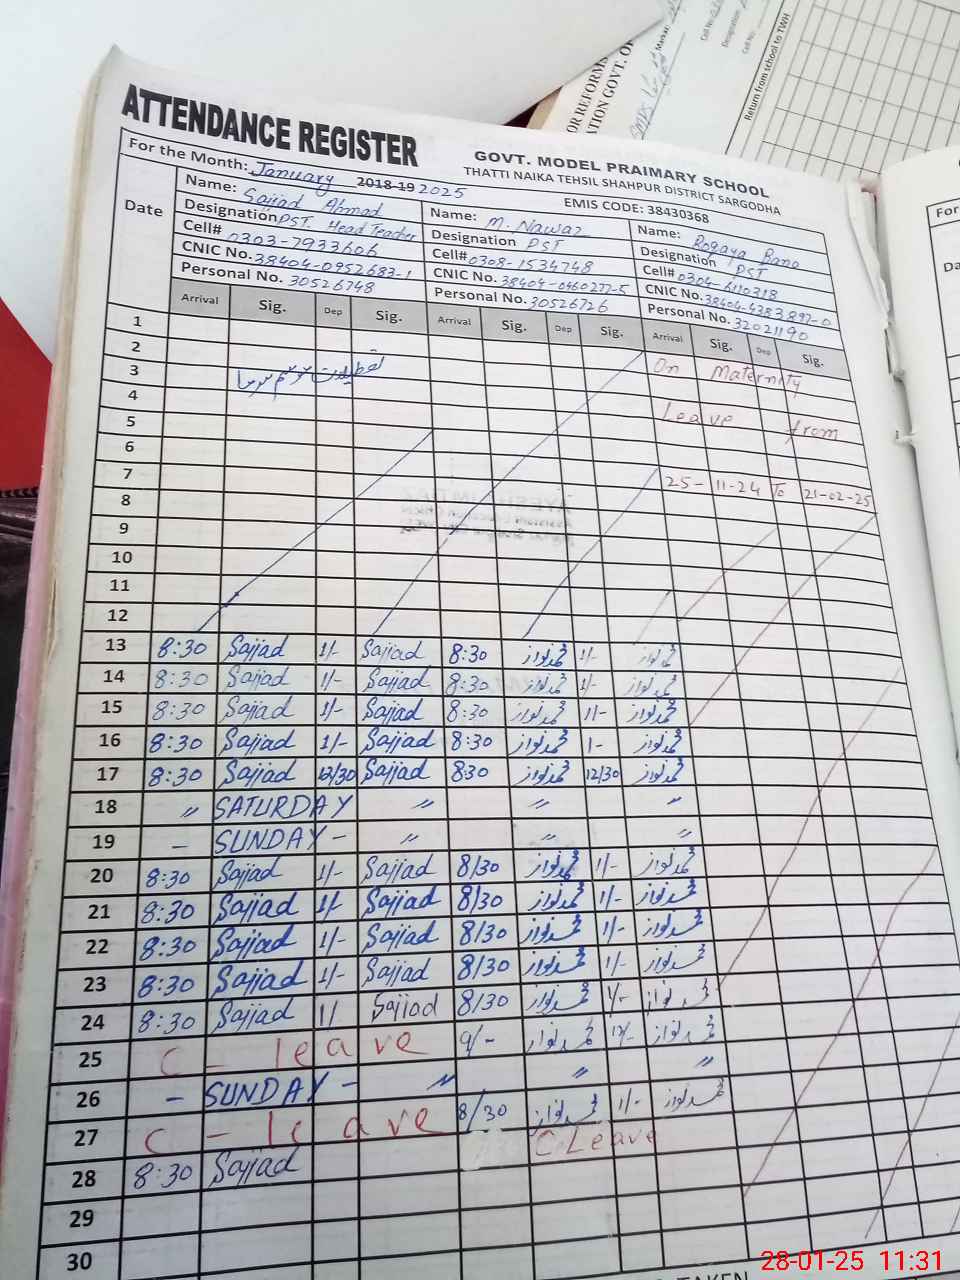 ATTENDANCE REGISTER
GOVT. MODEL PRAIMARY SCHOOL
THATTI NAIKA TEHSIL SHAHPUR DISTRICT SARGODHA
For the Month: January 2018-19 2025
EMIS CODE: 38430368
Date
Name: Sajjad Ahmad
Designation PST. Head Teacher
Cell# 0303-7933606
CNIC No. 38404-0952683-1
Personal No. 30526748
Name: M. Nawaz
Designation PST
Cell# 0308-1534748
CNIC No. 38404-0460277-5
Personal No. 30526726
Name: Roqaya Bano
Designation PST
Cell# 0304-6110318
CNIC No. 38404-4383897-0
Personal No. 32021190
Arrival Sig. Dep Sig. Arrival Sig. Dep Sig. Arrival Sig. Dep Sig.
1
2 On Maternity
3 تعطیلات موسم سرما
4 Leave from
5
6
7 25-11-24 To 21-02-25
8
9
10
11
12
13 8:30 Sajjad 1/- Sajjad 8:30 محمد نواز 1/- محمد نواز
14 8:30 Sajjad 1/- Sajjad 8:30 محمد نواز 1/- محمد نواز
15 8:30 Sajjad 1/- Sajjad 8:30 محمد نواز 1/- محمد نواز
16 8:30 Sajjad 1/- Sajjad 8:30 محمد نواز 1- محمد نواز
17 8:30 Sajjad 12/30 Sajjad 830 محمد نواز 12/30 محمد نواز
18 〃 SATURDAY 〃 〃 〃
19 – SUNDAY – 〃 〃 〃
20 8:30 Sajjad 1/- Sajjad 8/30 محمد نواز 1/- محمد نواز
21 8:30 Sajjad 1/- Sajjad 8/30 محمد نواز 1/- محمد نواز
22 8:30 Sajjad 1/- Sajjad 8/30 محمد نواز 1/- محمد نواز
23 8:30 Sajjad 1/- Sajjad 8/30 محمد نواز 1/- محمد نواز
24 8:30 Sajjad 1/ Sajjad 8/30 محمد نواز 1/- محمد نواز
25 C - leave 9/- محمد نواز 12/- محمد نواز
26 – SUNDAY – 〃 〃 〃
27 C - leave 8/30 محمد نواز 1/- محمد نواز
28 8:30 Sajjad C Leave
29
30
Return from school to TWH
28-01-25 11:31